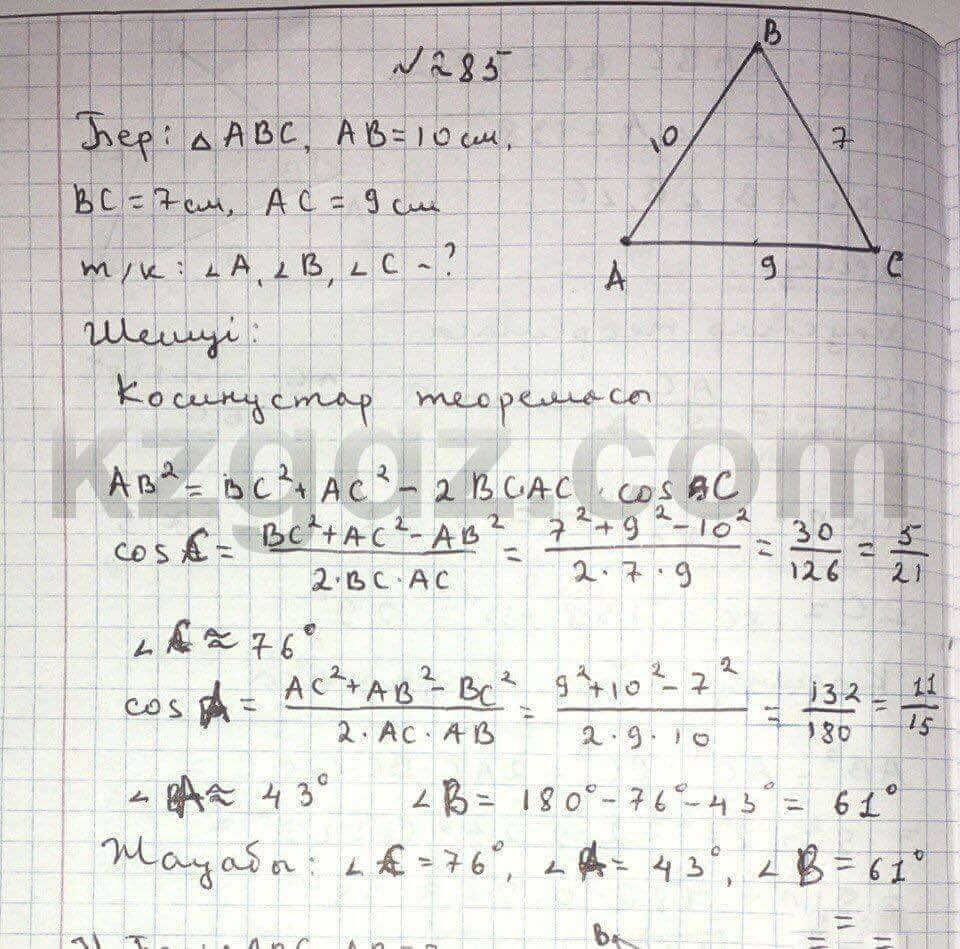 №285
Бер: △ABC, AB=10см,
BC=7см, AC=9см
т/к: ∠A, ∠B, ∠C -?
B
10
7
A
9
C
Шешуі:
Косинустар теоремасы
kzgaz.com
AB² = BC² + AC² - 2BC·AC · cos C
cos C = (BC² + AC² - AB²)/(2·BC·AC) = (7² + 9² - 10²)/(2·7·9) = 30/126 = 5/21
∠C ≈ 76°
cos A = (AC² + AB² - BC²)/(2·AC·AB) = (9² + 10² - 7²)/(2·9·10) = 132/180 = 11/15
∠A ≈ 43° ∠B = 180° - 76° - 43° = 61°
Жауабы: ∠C = 76°, ∠A = 43°, ∠B = 61°